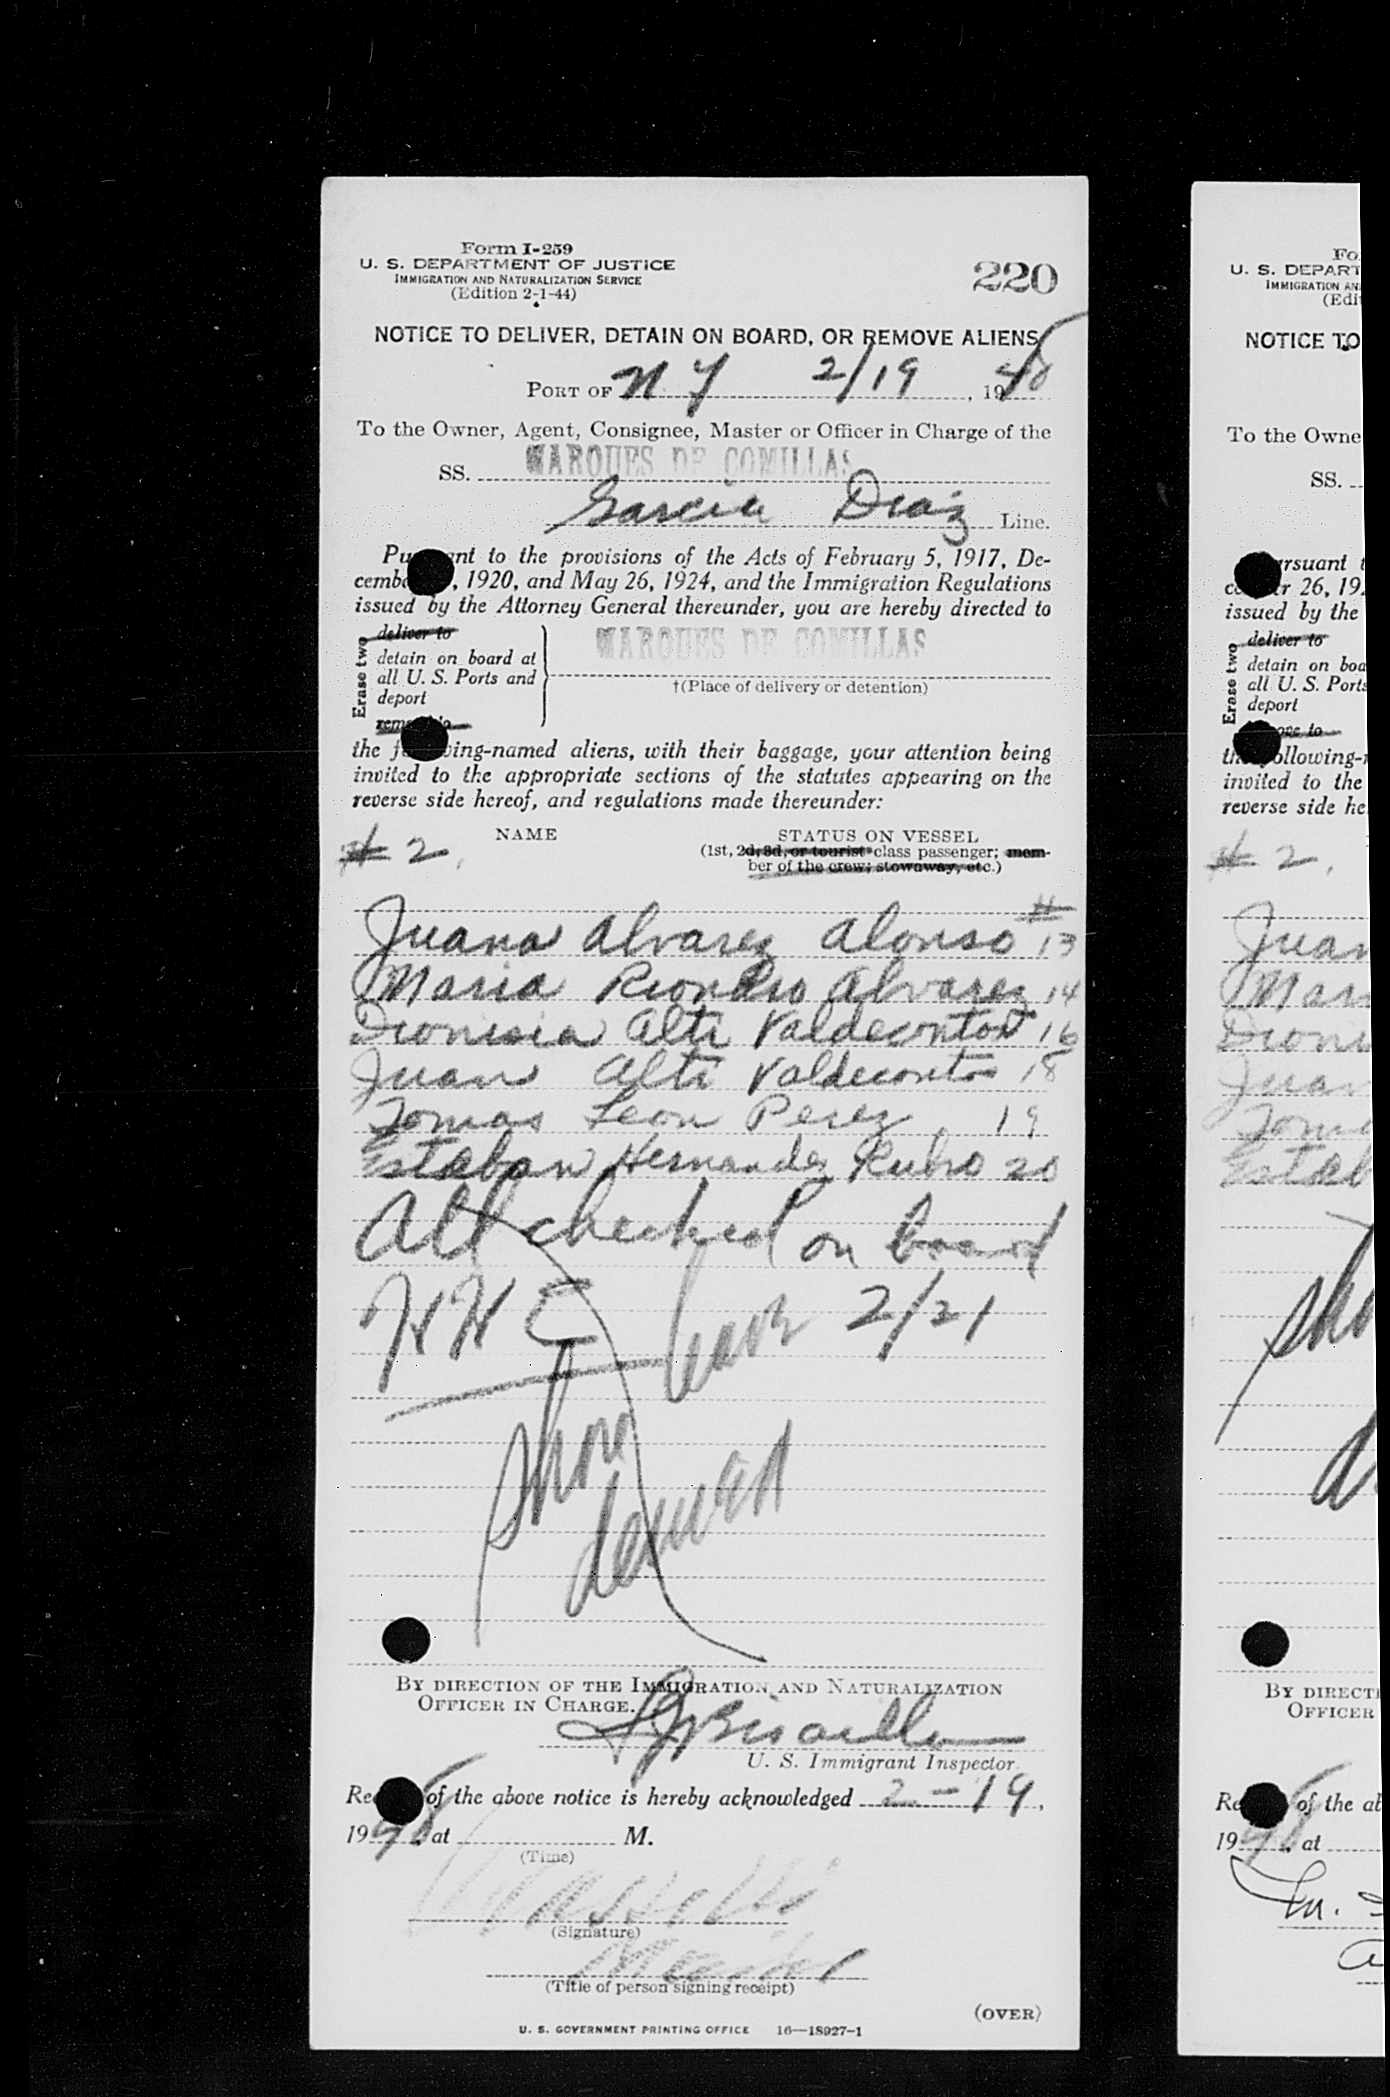 Form I-259
U. S. DEPARTMENT OF JUSTICE
IMMIGRATION AND NATURALIZATION SERVICE
(Edition 2-1-44)
220
NOTICE TO DELIVER, DETAIN ON BOARD, OR REMOVE ALIENS
PORT OF N Y 2/19, 1948
To the Owner, Agent, Consignee, Master or Officer in Charge of the
SS. MARQUES DE COMILLAS
Garcia Diaz Line.
Pu nt to the provisions of the Acts of February 5, 1917, De-
cemb , 1920, and May 26, 1924, and the Immigration Regulations
issued by the Attorney General thereunder, you are hereby directed to
Erase two
deliver to
detain on board at
all U. S. Ports and
deport
rem to
MARQUES DE COMILLAS
†(Place of delivery or detention)
the f wing-named aliens, with their baggage, your attention being
invited to the appropriate sections of the statutes appearing on the
reverse side hereof, and regulations made thereunder:
# 2. NAME STATUS ON VESSEL
(1st, 2d, 3d, or tourist class passenger; mem-
ber of the crew; stowaway, etc.)
#
Juana Alvarez Alonso 13
Maria Alvarez 14
Dionisia Alti 16
Juan Alti 18
Tomas Leon Perez 19
Esteban Hernandez Rubio 20
All checked on board
H H E 2/21
BY DIRECTION OF THE IMMIGRATION AND NATURALIZATION
OFFICER IN CHARGE.
U. S. Immigrant Inspector.
Re of the above notice is hereby acknowledged 2-19,
1948 at M.
(Time)
(Signature)
Master
(Title of person signing receipt)
(OVER)
U. S. GOVERNMENT PRINTING OFFICE 16—18927-1
Fo
U. S. DEPART
IMMIGRATION AN
(Edit
NOTICE TO
To the Owne
SS.
rsuant t
ce r 26, 19
issued by the
Erase two
deliver to
detain on boa
all U. S. Ports
deport
ove to
th ollowing-
invited to the
reverse side he
# 2.
Juan
Mari
Dioni
Juan
Toma
Esteb
BY DIRECT
OFFICER
Re of the ab
19 at